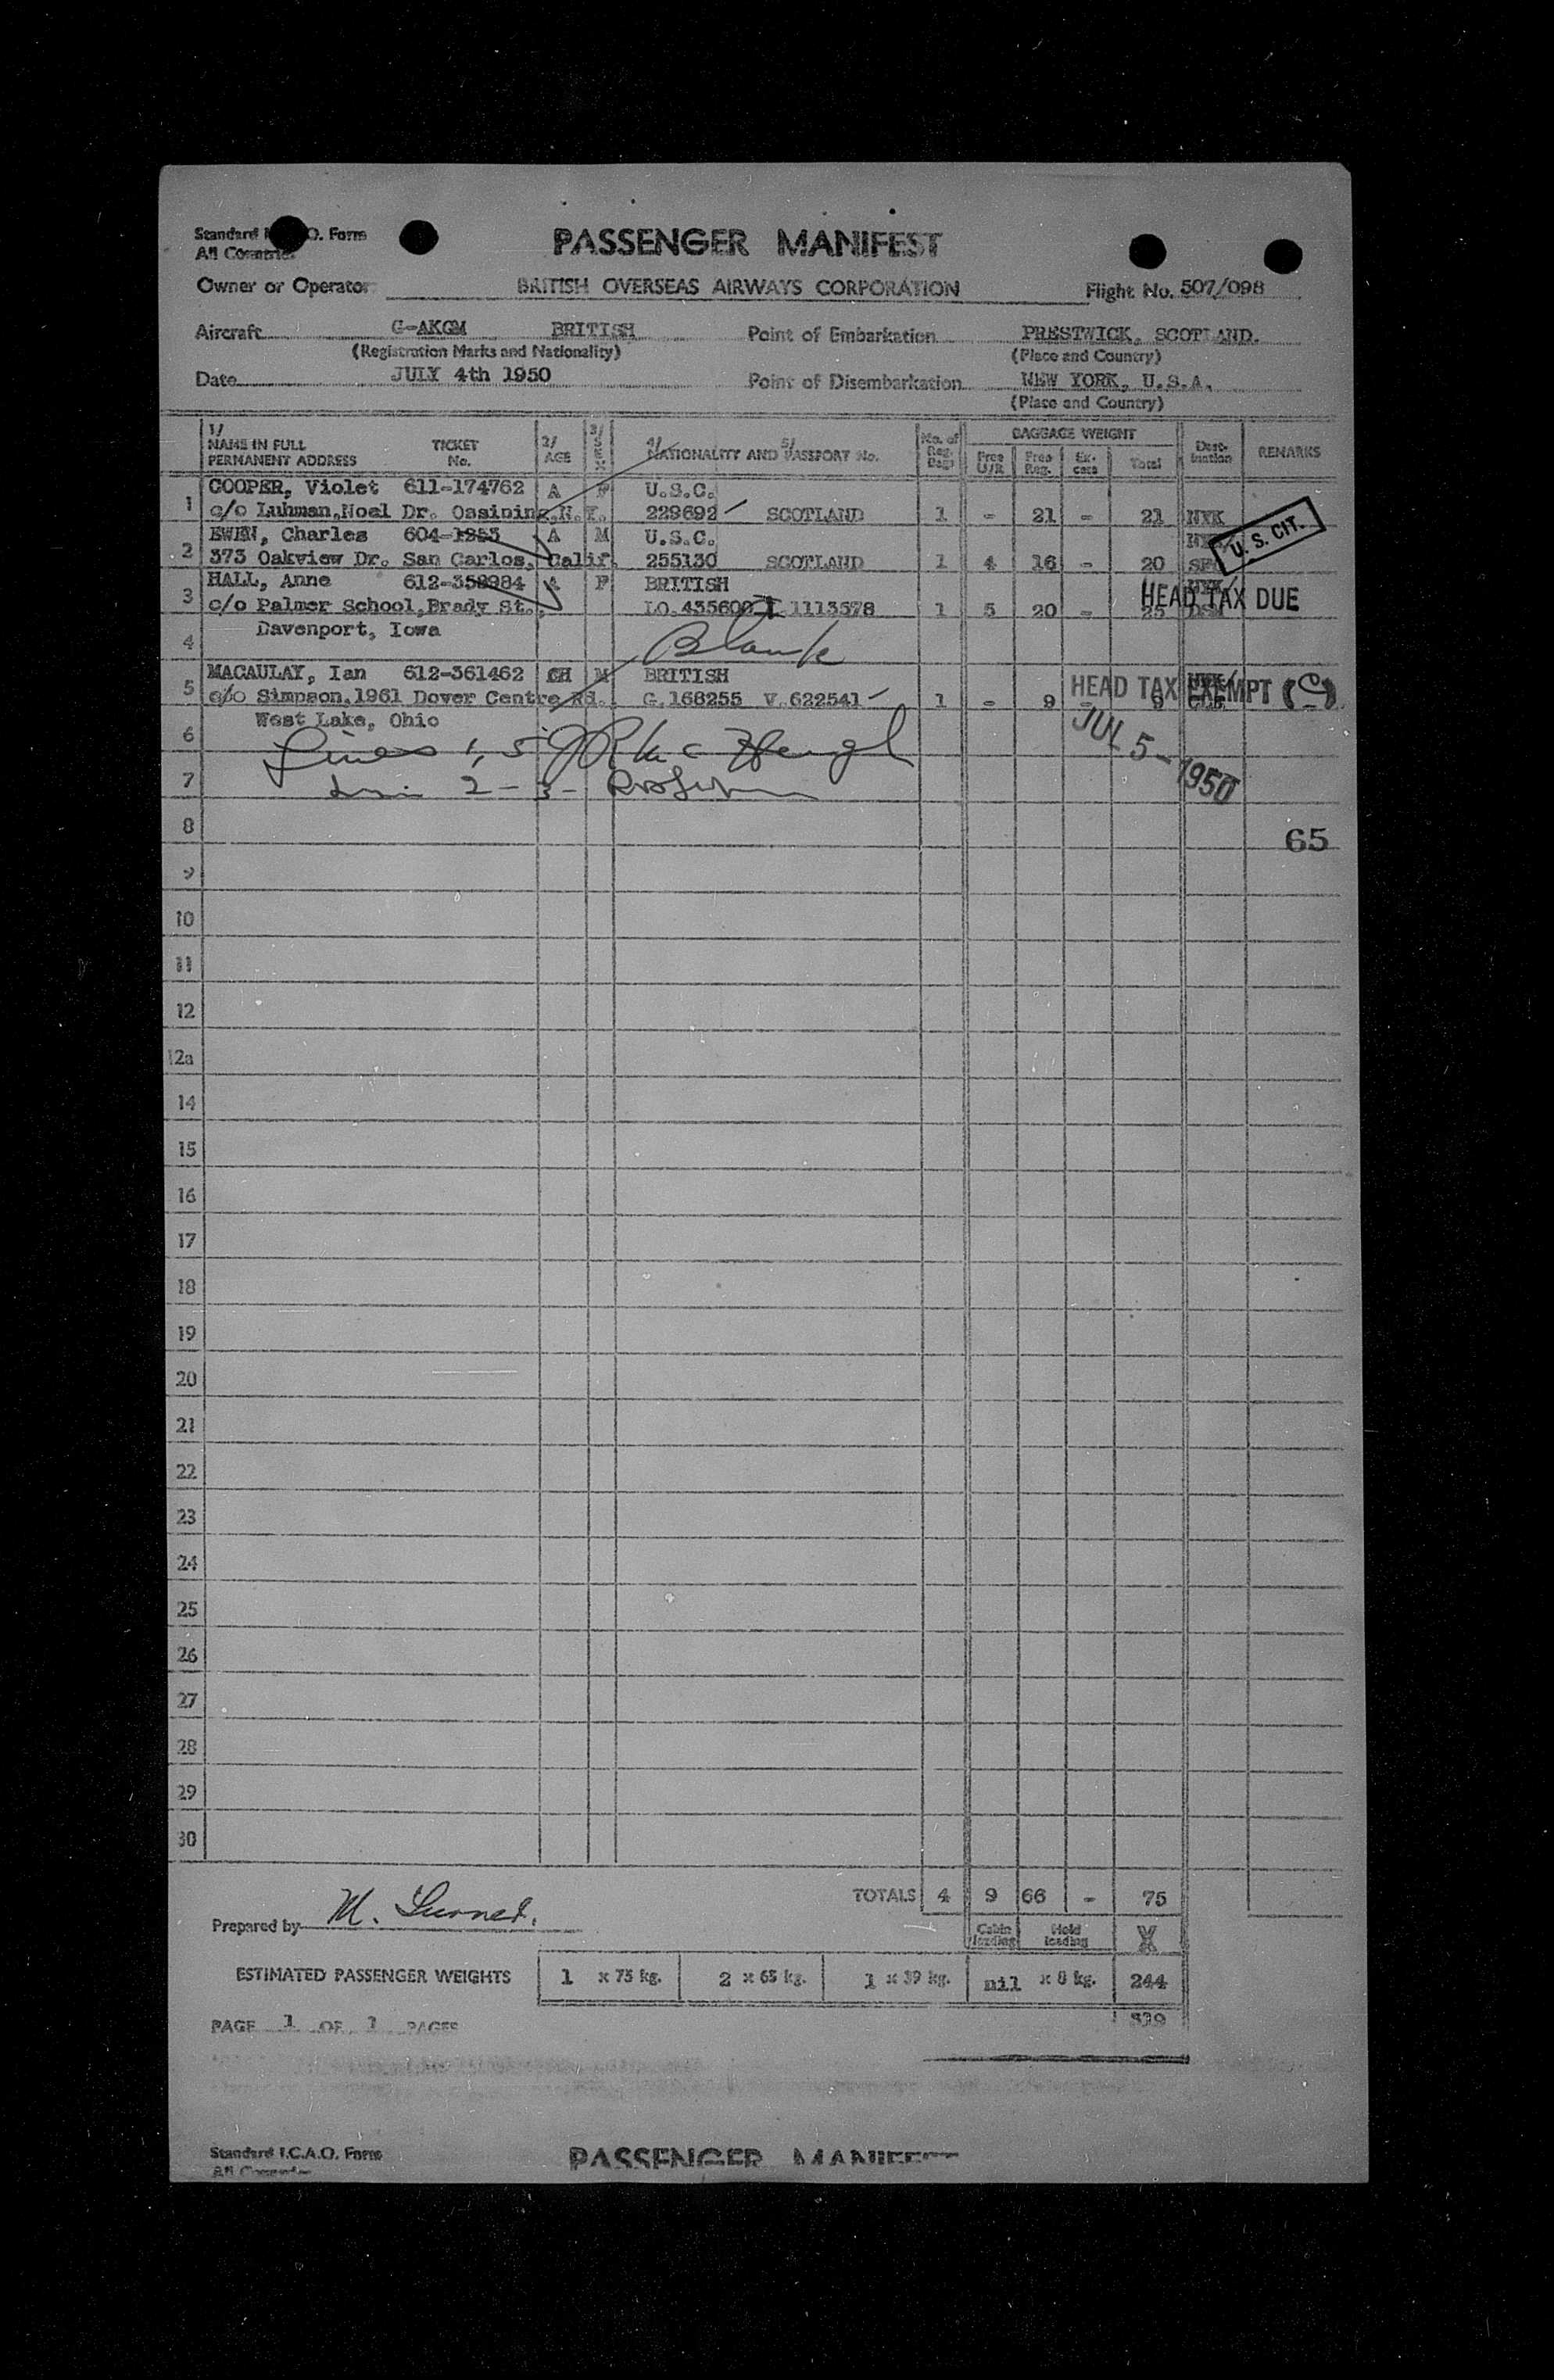 Standard I.C.A.O. Form
All Countries
PASSENGER MANIFEST
Owner or Operator BRITISH OVERSEAS AIRWAYS CORPORATION Flight No. 507/098
Aircraft G-AKGM BRITISH Point of Embarkation PRESTWICK, SCOTLAND.
(Registration Marks and Nationality) (Place and Country)
Date JULY 4th 1950 Point of Disembarkation NEW YORK, U.S.A.
(Place and Country)
1/ NAME IN FULL PERMANENT ADDRESS TICKET No. 2/ AGE 3/ SEX 4/ 5/ NATIONALITY AND PASSPORT No. No. of Reg. Bags BAGGAGE WEIGHT Free U/R Free Reg. Ex-cess Total Dest-ination REMARKS
COOPER, Violet 611-174762 A F U.S.C.
1 c/o Luhman, Noel Dr. Ossining, N.Y. 229692 SCOTLAND 1 - 21 - 21 NYK
EWEN, Charles 604-1253 A M U.S.C. U. S. CIT.
2 373 Oakview Dr. San Carlos, Calif. 255130 SCOTLAND 1 4 16 - 20 SFO
HALL, Anne 612-358984 A F BRITISH
3 c/o Palmer School, Brady St., LO.435600 I.1113578 1 5 20 - 25 HEAD TAX DUE
Davenport, Iowa
4 Blank
MACAULAY, Ian 612-361462 CH M BRITISH
5 c/o Simpson, 1961 Dover Centre Rd. G.168255 V.622541 1 - 9 - 9 HEAD TAX EXEMPT
West Lake, Ohio
6 Lines 1, 5 JUL 5 - 1950
7 2 - 3 -
8 65
9
10
11
12
12a
14
15
16
17
18
19
20
21
22
23
24
25
26
27
28
29
30
TOTALS 4 9 66 - 75
Prepared by M. Cabin loading Hold loading
ESTIMATED PASSENGER WEIGHTS 1 x 75 kg. 2 x 65 kg. 1 x 39 kg. nil x 8 kg. 244
PAGE 1 OF 1 PAGES
Standard I.C.A.O. Form
PASSENGER MANIFEST